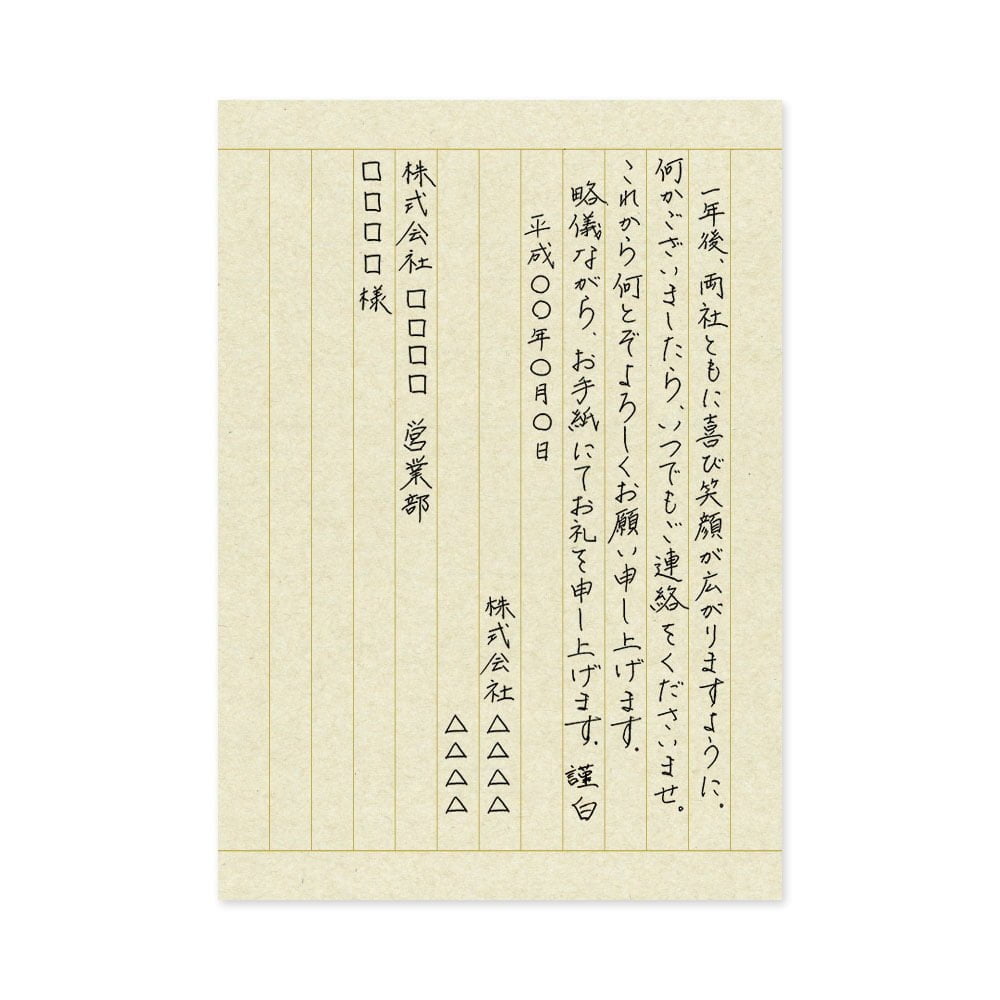 一年後、両社ともに喜び笑顔が広がりますように。
何かございましたら、いつでもご連絡をくださいませ。
これから何とぞよろしくお願い申し上げます。
略儀ながら、お手紙にてお礼を申し上げます。謹白
平成〇〇年〇月〇日
株式会社△△△△
△△△△
株式会社 □□□□ 営業部
□□□□様